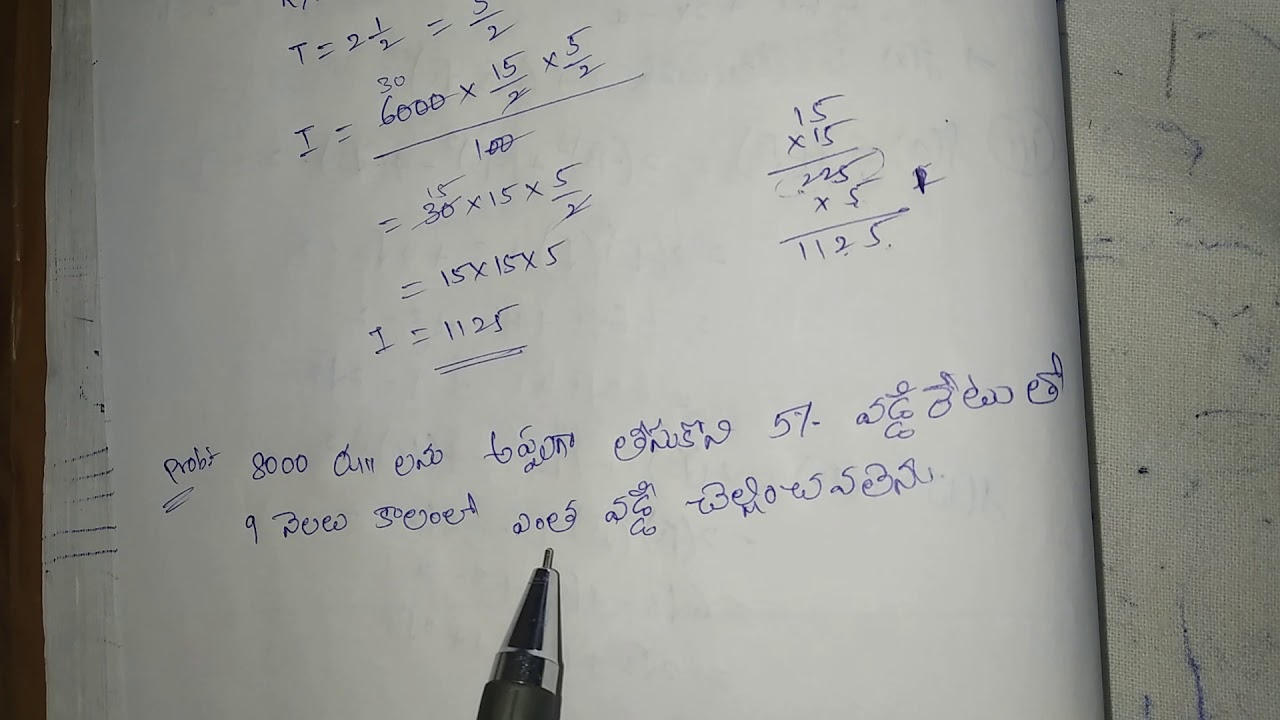 T = 2 1/2 = 5/2
30
I = 6000 × 15/2 × 5/2
100
15
= 30 × 15 × 5/2
= 15 × 15 × 5
I = 1125
15
× 15
225
× 5
1125.
Prob:- 8000 రూ॥ లను అప్పుగా తీసుకొని 5% వడ్డీ రేటు తో
9 నెలలు కాలంలో ఎంత వడ్డీ చెల్లించవలెను.